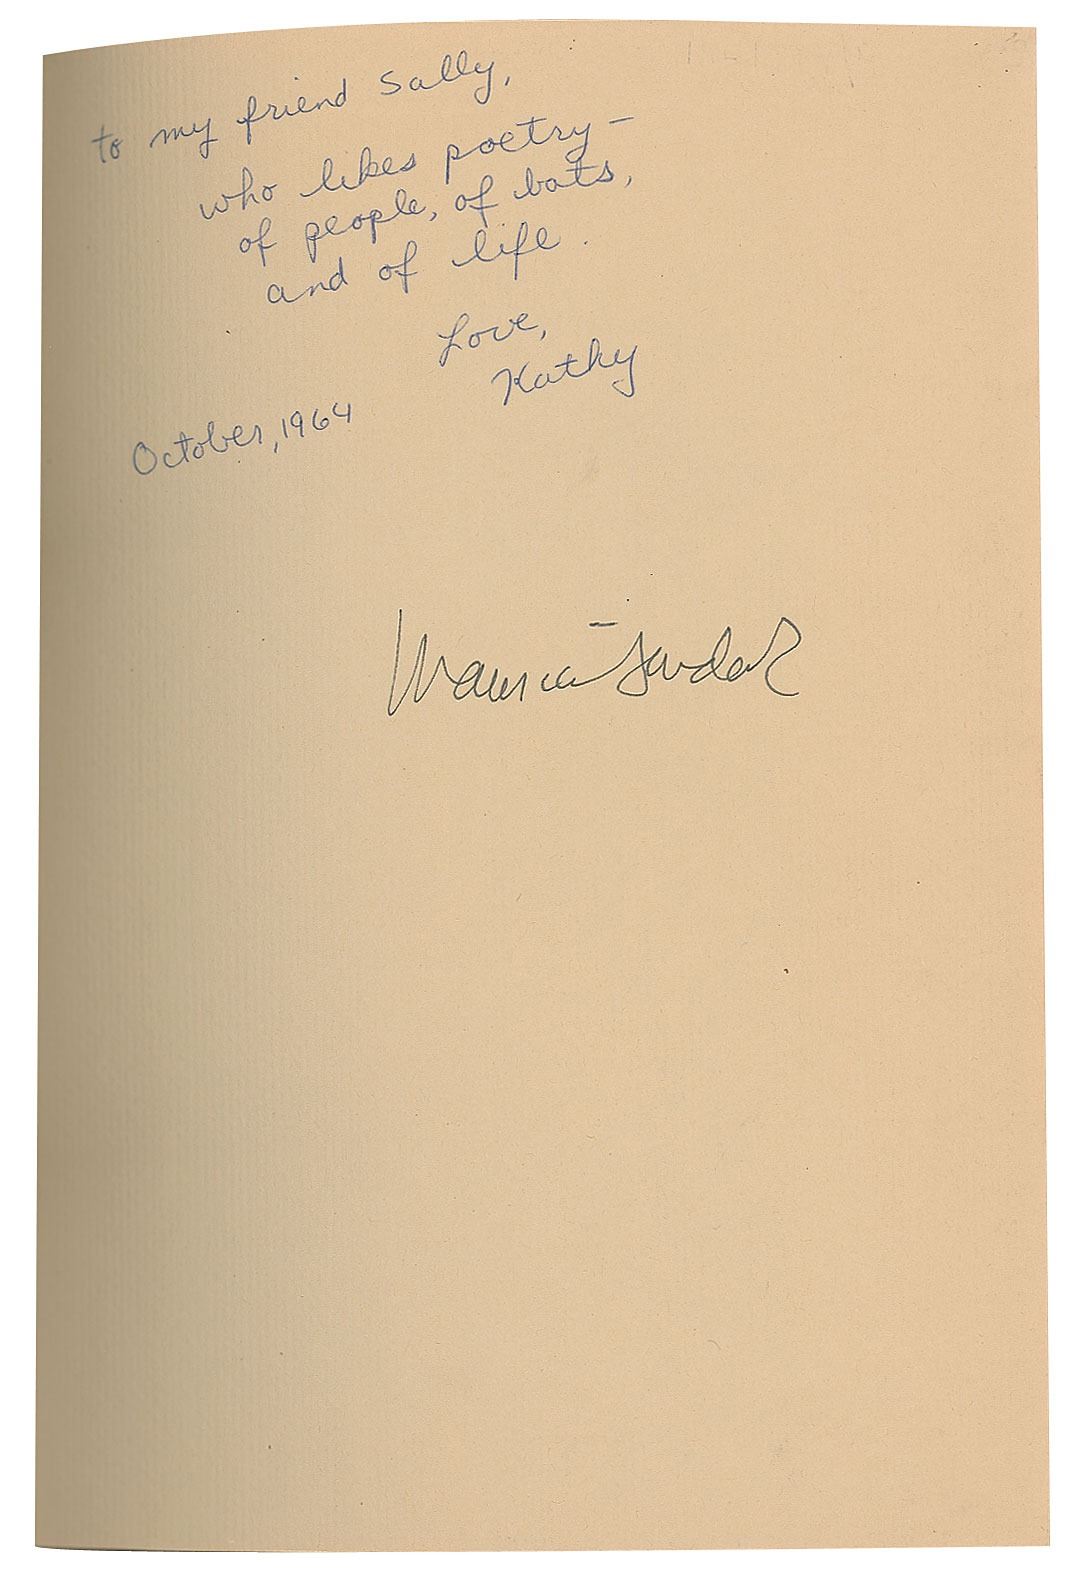 to my friend Sally,
who likes poetry –
of people, of bats,
and of life.
Love,
Kathy
October, 1964
Maurice Sendak